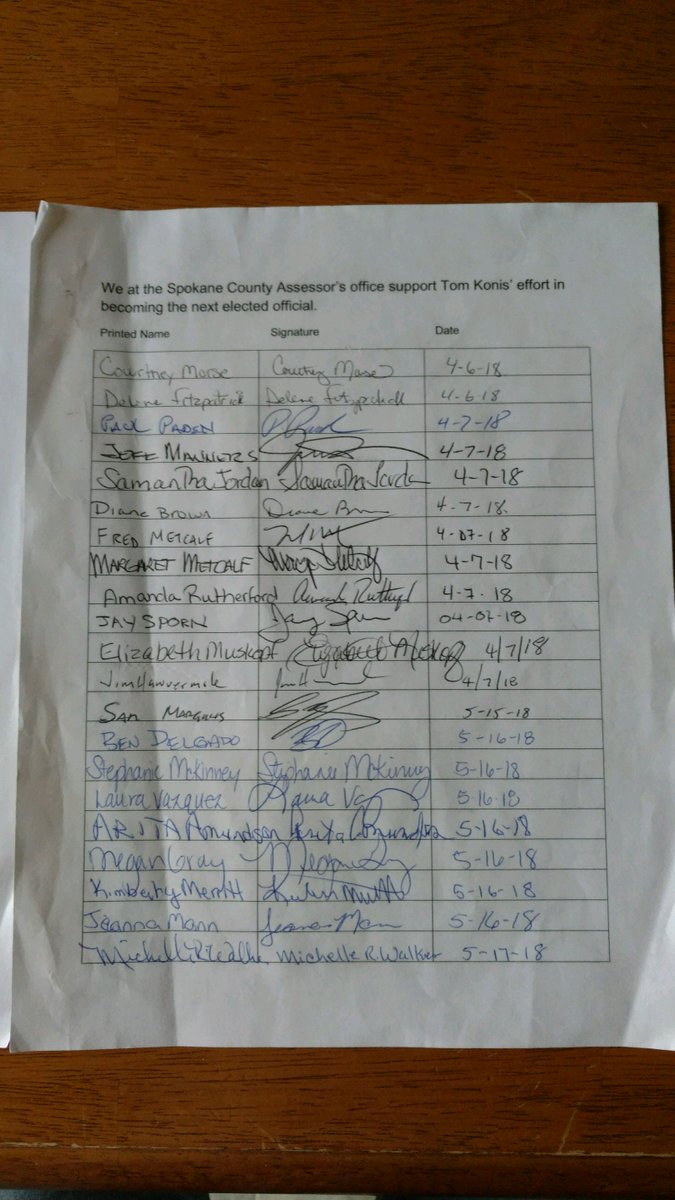 We at the Spokane County Assessor's office support Tom Konis' effort in
becoming the next elected official.
Printed Name Signature Date
Courtney Morse Courtney Morse 4-6-18
Delene Fitzpatrick Delene Fitzpatrick 4-6-18
PAUL PADEN 4-7-18
JEFF MANNERS 4-7-18
Samantha Jordan Samantha Jordan 4-7-18
Diane Brown Diane Brown 4-7-18
FRED METCALF 4-07-18
MARGARET METCALF 4-7-18
Amanda Rutherford Amanda Rutherford 4-7-18
JAY SPORN Jay Sporn 04-07-18
Elizabeth Muskopf Elizabeth Muskopf 4/7/18
4/7/18
SAM 5-15-18
BEN DELGADO 5-16-18
Stephanie McKinney Stephanie McKinney 5-16-18
Laura Vazquez Laura 5-16-18
ARITA Amundson Arita Amundson 5-16-18
Megan Gray Megan Gray 5-16-18
Kimberly Merritt 5-16-18
Jeanna Mann Jeanna Mann 5-16-18
Michelle R Walker Michelle R. Walker 5-17-18